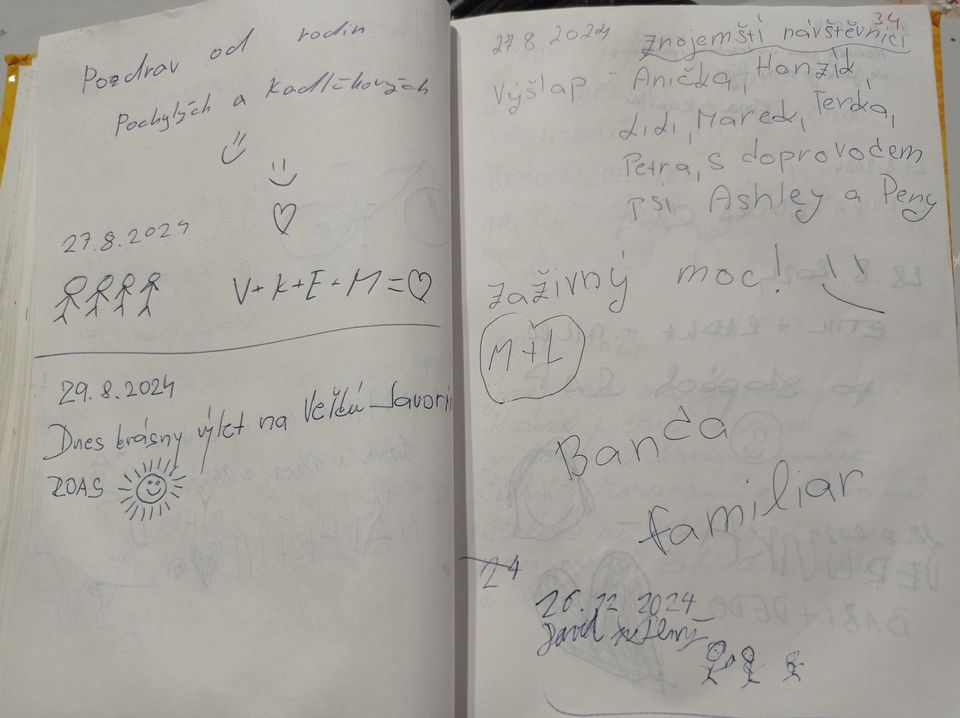 Pozdrav od rodin
Pochylých a Kadlčkových
27.8.2024
V+K+E+M=♡
29.8.2024
Dnes krásny výlet na Veľkú Javori
ZOAS
34
27.8.2024 Znojemští návštěvníci
Výšlap - Anička, Honzík,
Lidi, Marek, Terka,
Petra, s doprovodem
psi Ashley a Peny
zaživný moc! ! !
M+L
Banda
familiar
24
26.12 2024
David